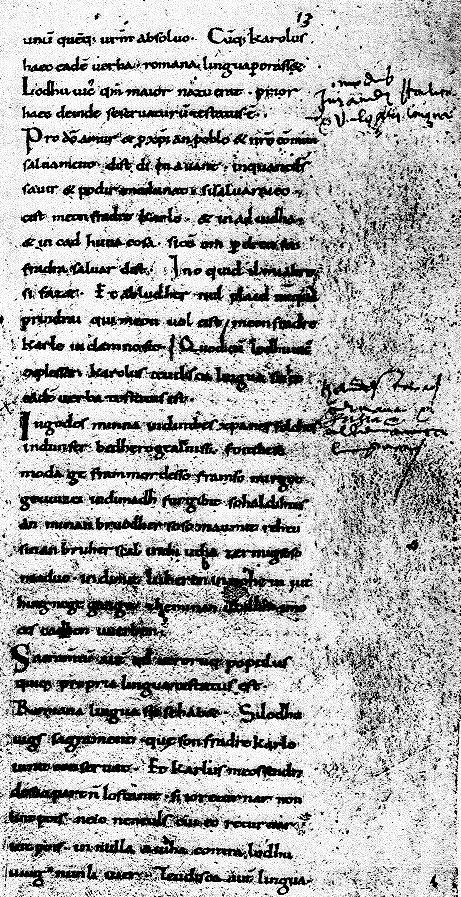 13
unu queq; urm absoluo. Cuq; karolus
haec eade uerba romana lingua porasset.
Lodhuuic qm maior natu erat. prior
haec deinde se seruaturu testatus e.
Pro do amur & p xpian poblo & nro comun
saluament. dist di in auant. inquantds
sauir & podir medunat. sisaluaraieo.
cist meon fradre karlo. & in adiudha.
& in cad huna cosa. sicu om p dreit son
fradra saluar dist. Ino quid il mialtre
si fazet. Et abludher nul plaid nuqua
prindrai qui meon uol cist meonfradre
karle in damno sit. Quod cu lodhuuic
explesset. karolus teudisca lingua
eade uerba testatus est.
Ingodes minna induithes xpanes folches
indunser bedhero gealtnissi. fonthese
moda ge frammordesso framso mirgot
geuuizci indimadh furgibit sohaldihtes
an minan bruodher soso manmit rehtu
sinan bruher scal inthi utha zermigsoso
maduo. indimit luheren innohein iut
hing nege gango. zheminan uuillon imo
ce scadhen uuerhen.
Sacramentu aut qd utrorumq; populus
quiq; propria lingua testatus est.
Romana lingua sic se habet. Silodhu
uigs sagrament. que son fradre karlo
iurat conseruat. Et karlus meossendra
desuo partn lostanit. si ioreturnar non
lint pois. neio neneuls cui eo returnar
int pois. in nulla aiudha contra lodhu
uuig nunli iuer. Teudisca aut lingua